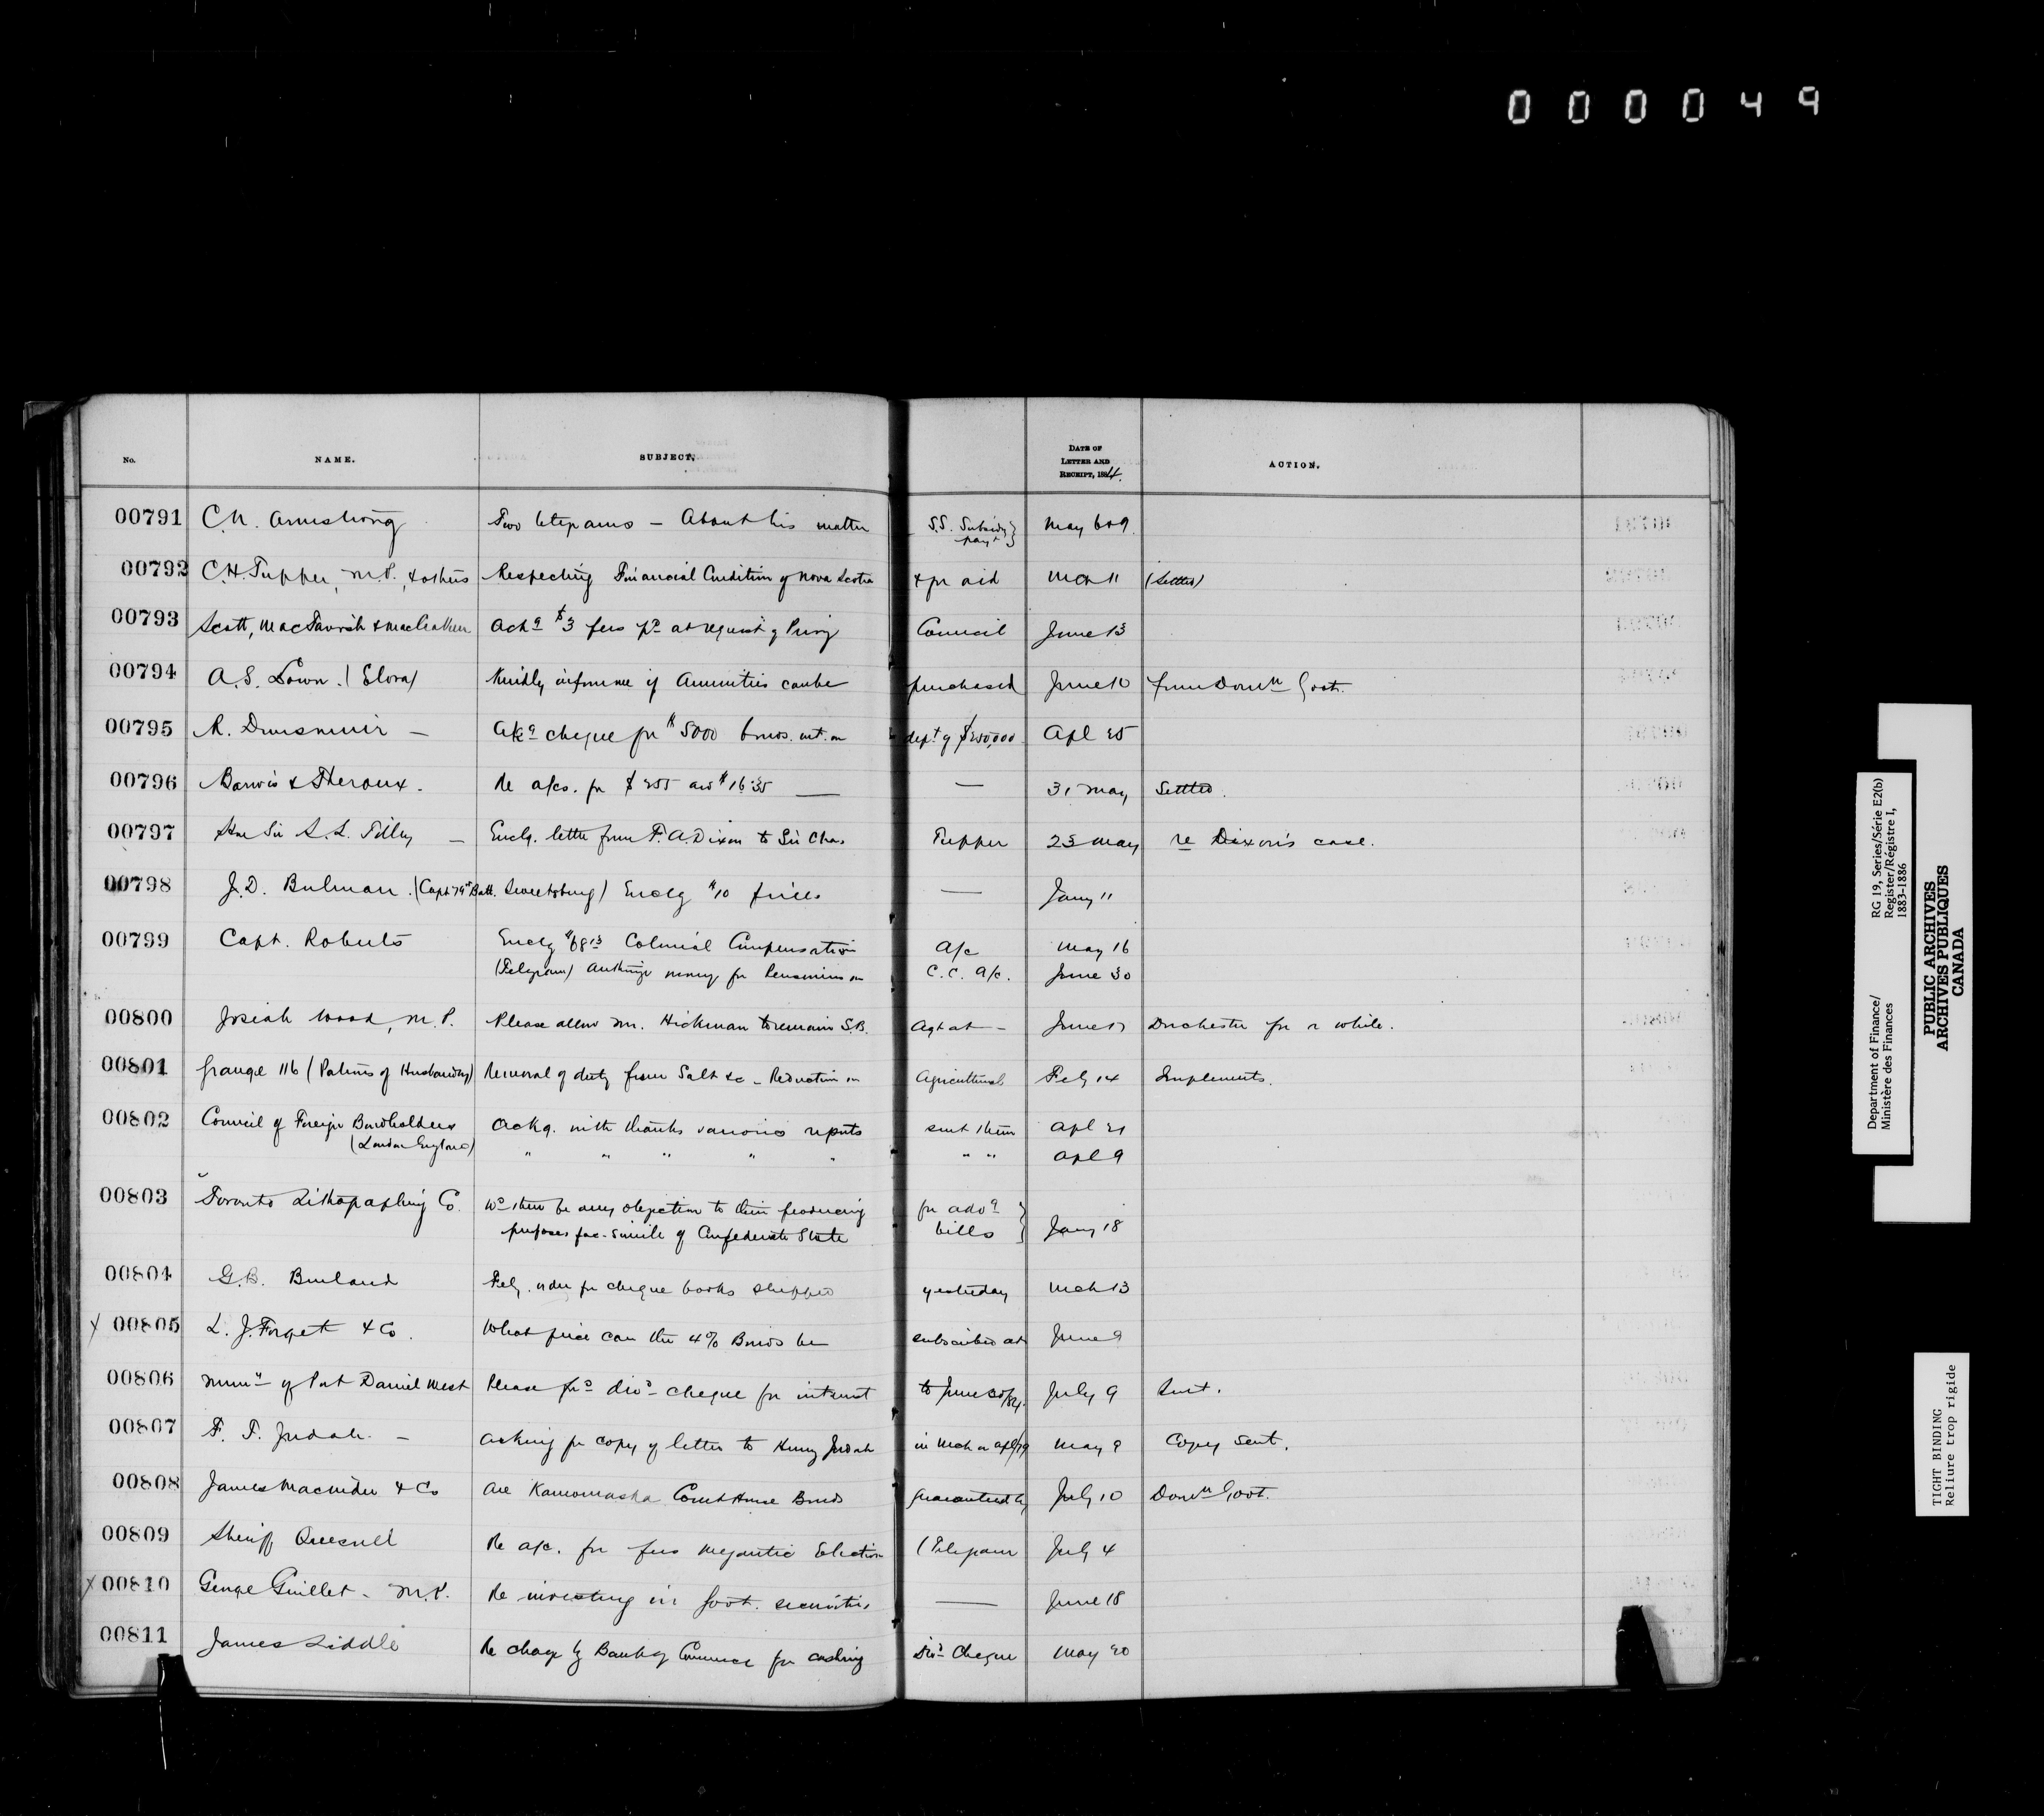 000049
No. NAME. SUBJECT. DATE OF LETTER AND RECEIPT, 1884. ACTION.
00791 C.N. Armstrong Two telegrams – About his matter S.S. Subsidy payt } May 6 & 9
00792 C.H. Tupper, M.P., & others Respecting Financial Condition of Nova Scotia & for aid Mch 11 (Settled)
00793 Scott, MacTavish & MacCracken Ackg $3 fees pd at request of Privy Council June 13
00794 A.S. Lown. (Elora) Kindly inform me if Annuities can be purchased June 10 from Domn Govt.
00795 R. Dunsmuir – Akg cheque for $5000 bonds. int. on dept of $250,000 Apl 25
00796 Barwis & Theroux. Re a/cs. for $255 and $16.35 — — 31 May Settled.
00797 Hon Sir S.L. Tilley – Enclg. letter from F.A. Dixon to Sir Chas Tupper 23 May re Dixon's case.
00798 J.D. Bulman. (Capt 79th Batt. Sweetsburg) Enclg $10 fines — Jany 11
00799 Capt. Roberts Enclg $68.13 Colonial Compensation A/c May 16
(Telegram) Authorize money for Pensioners on C.C. A/c. June 30
00800 Josiah Wood, M.P. Please allow Mr. Hickman to remain S.B. Agt at – June 17 Dorchester for a while.
00801 Grange 116 (Patrons of Husbandry) Removal of duty from Salt &c – Reduction on Agricultural Feby 14 Implements.
00802 Council of Foreign Bondholders Ackg. with thanks various reports sent them Apl 21
(London England) " " " " " " " Apl 9
00803 Toronto Lithographing Co. Wd there be any objection to their producing for advg
purposes fac-simile of Confederate State bills } Jany 18
00804 G.B. Burland Tely. order for cheque books shipped yesterday Mch 13
X 00805 L.J. Forget & Co. What price can the 4% Bonds be subscribed at June 9
00806 Munn of Port Daniel West Please fwd divd cheque for interest to June 30/84. July 9 Sent.
00807 F.T. Judah. – Asking for copy of letter to Henry Judah in Mch or Apl/79 May 9 Copy sent.
00808 James Macnider & Co Are Kamouraska Court House Bonds guaranteed by July 10 Domn Govt.
00809 Sheriff Quesnel Re a/c. for fees Megantic Election (Telegram July 4
X 00810 George Guillet – M.P. Re investing in Govt. securities — June 18
00811 James Liddle Re charge by Bank of Commerce for cashing Divd Cheque May 20
Department of Finance/
Ministère des Finances
RG 19, Series/Série E2(b)
Register/Régistre I,
1883-1886
PUBLIC ARCHIVES
ARCHIVES PUBLIQUES
CANADA
TIGHT BINDING
Reliure trop rigide